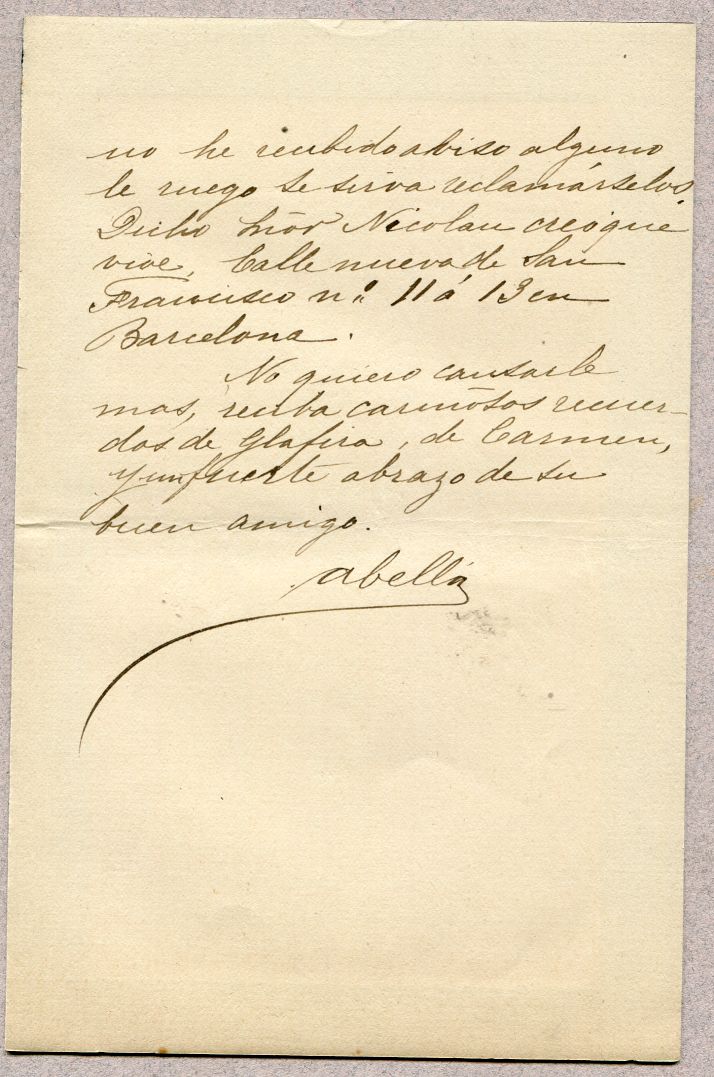 no he recibido abiso alguno
le ruego se sirva reclamárselos,
Dicho Sñor Nicolau creo que
vive, Calle nueva de San
Francisco nº. 11 á 13 en
Barcelona.
No quiero cansarle
mas, reciba cariñosos recuer-
dos de Glafira, de Carmen,
y un fuerte abrazo de su
buen amigo.
Abellá